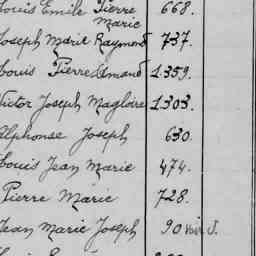 Louis Emile Pierre 668.
Marie
Joseph Marie Raymond 737.
Louis Pierre Armand 1.359.
Victor Joseph Magloire 1.303.
Alphonse Joseph 630.
Louis Jean Marie 474.
Pierre Marie 728.
Jean Marie Joseph 90 voir d.